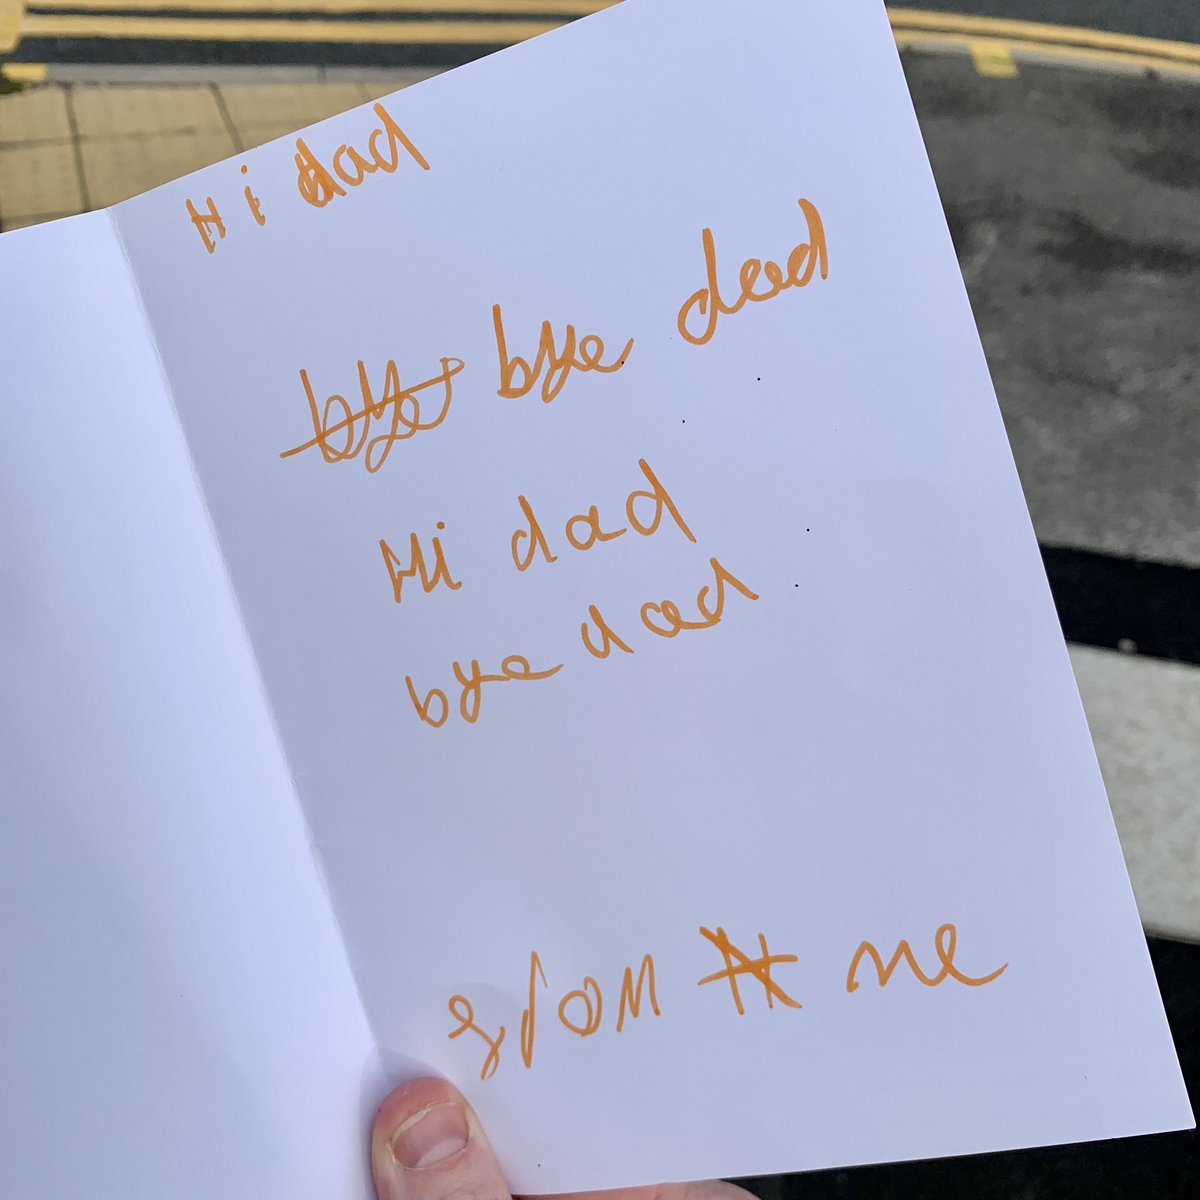 Hi dad
bye bye dad
Hi dad
bye dad
from me